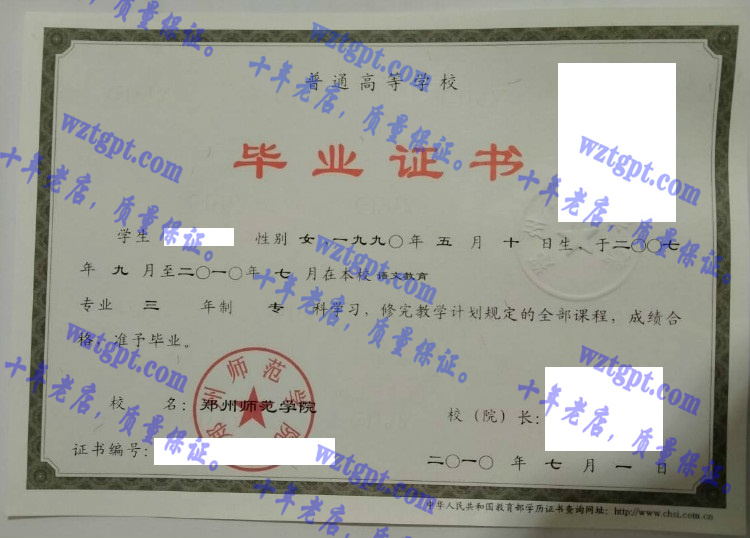 普通高等学校
毕业证书
学生 性别 女，一九九〇年 五 月 十 日生，于二〇〇七
年 九 月至二〇一〇年 七 月在本校 语文教育
专业 三 年制 专 科学习，修完教学计划规定的全部课程，成绩合
格，准予毕业。
校 名：郑州师范学院
校（院）长：
证书编号：
二〇一〇 年 七 月 一 日
中华人民共和国教育部学历证书查询网址：http://www.chsi.com.cn
郑州师范学院
wztgpt.com
十年老店，质量保证。
wztgpt.com
十年老店，质量保证。
wztgpt.com
十年老店，质量保证。
wztgpt.com
十年老店，质量保证。
wztgpt.com
十年老店，质量保证。
wztgpt.com
十年老店，质量保证。
wztgpt.com
十年老店，质量保证。
wztgpt.com
十年老店，质量保证。